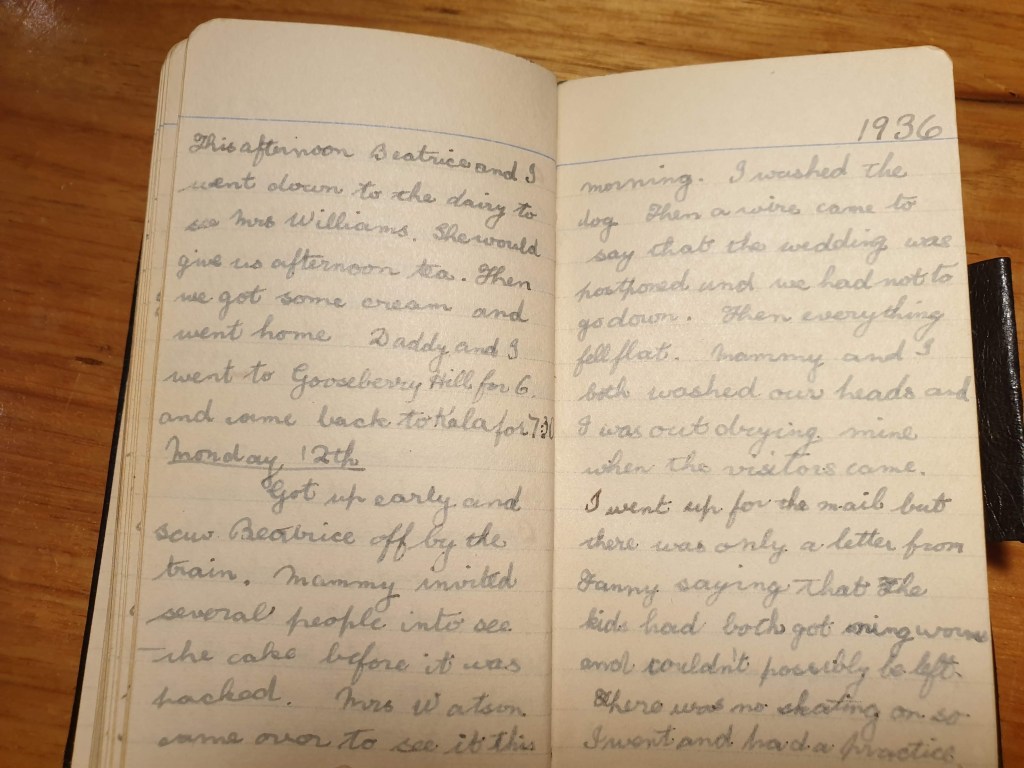 This afternoon Beatrice and I
went down to the dairy to
see Mrs Williams. She would
give us afternoon tea. Then
we got some cream and
went home Daddy and I
went to Gooseberry Hill for 6.
and came back to Kala for 7:30
Monday 12th
Got up early and
saw Beatrice off by the
train. Mammy invited
several people into see
the cake before it was
packed. Mrs Watson
came over to see it this
1936
morning. I washed the
dog Then a wire came to
say that the wedding was
postponed and we had not to
go down. Then everything
fell flat. Mammy and I
both washed our heads and
I was out drying mine
when the visitors came.
I went up for the mail but
there was only a letter from
Fanny saying that the
kids had both got ring worm
and couldn't possibly be left.
There was no skating on so
I went and had a practice.